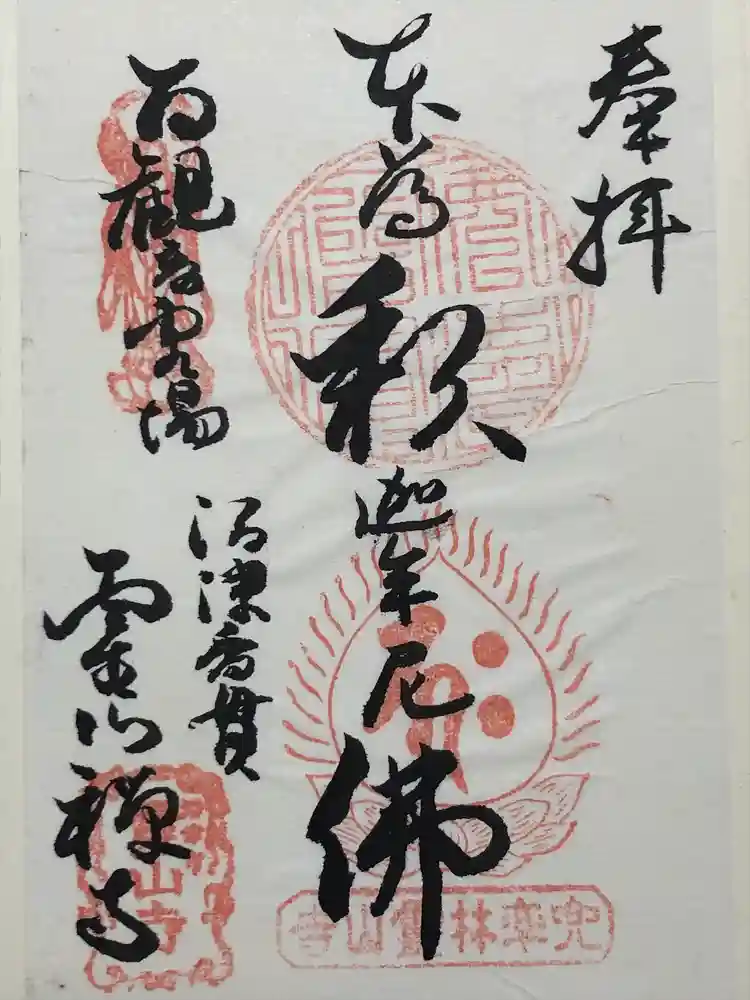 奉拝
本尊
釈迦牟尼佛
百観音霊場
沼津香貫
霊山禅寺
兜率林靈山寺
山寺